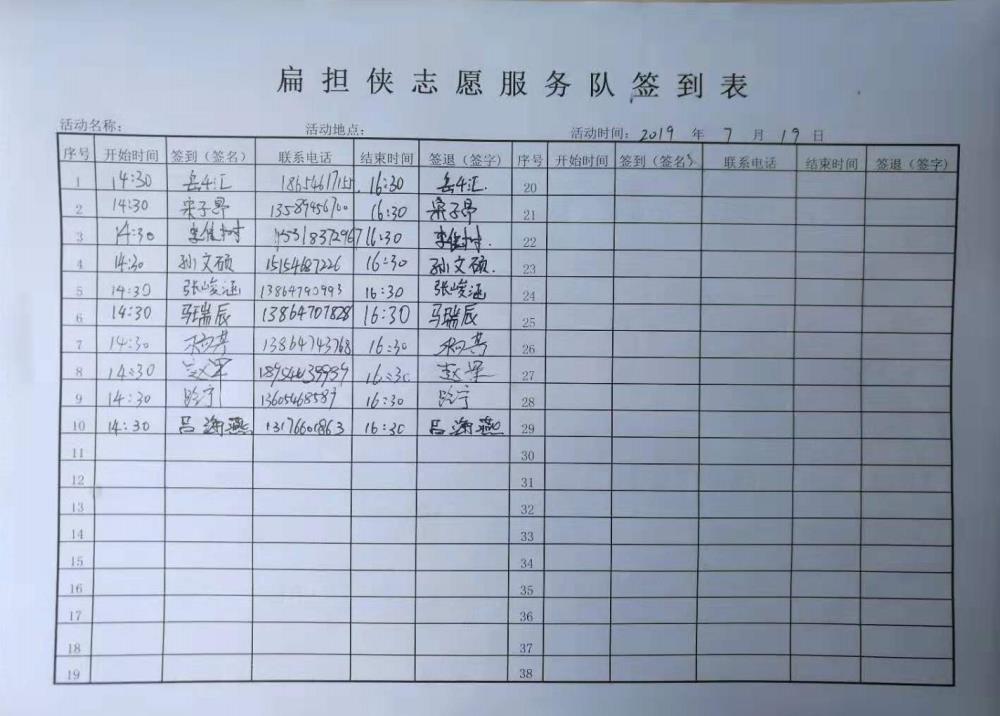 扁担侠志愿服务队签到表
活动名称： 活动地点： 活动时间：2019 年 7 月 19 日
序号 开始时间 签到（签名） 联系电话 结束时间 签退（签字） 序号 开始时间 签到（签名） 联系电话 结束时间 签退（签字）
1 14:30 18654617155 16:30 20
2 14:30 宋子昂 13589456700 16:30 宋子昂 21
3 14:30 李佳树 15318372967 16:30 李佳树 22
4 14:30 孙文硕 15154687226 16:30 孙文硕 23
5 14:30 张峻涵 13864790993 16:30 张峻涵 24
6 14:30 马瑞辰 13864707828 16:30 马瑞辰 25
7 14:30 13864743768 16:30 26
8 14:30 16:30 27
9 14:30 13605468587 16:30 28
10 14:30 吕海燕 13176601863 16:30 吕海燕 29
11 30
12 31
13 32
14 33
15 34
16 35
17 36
18 37
19 38